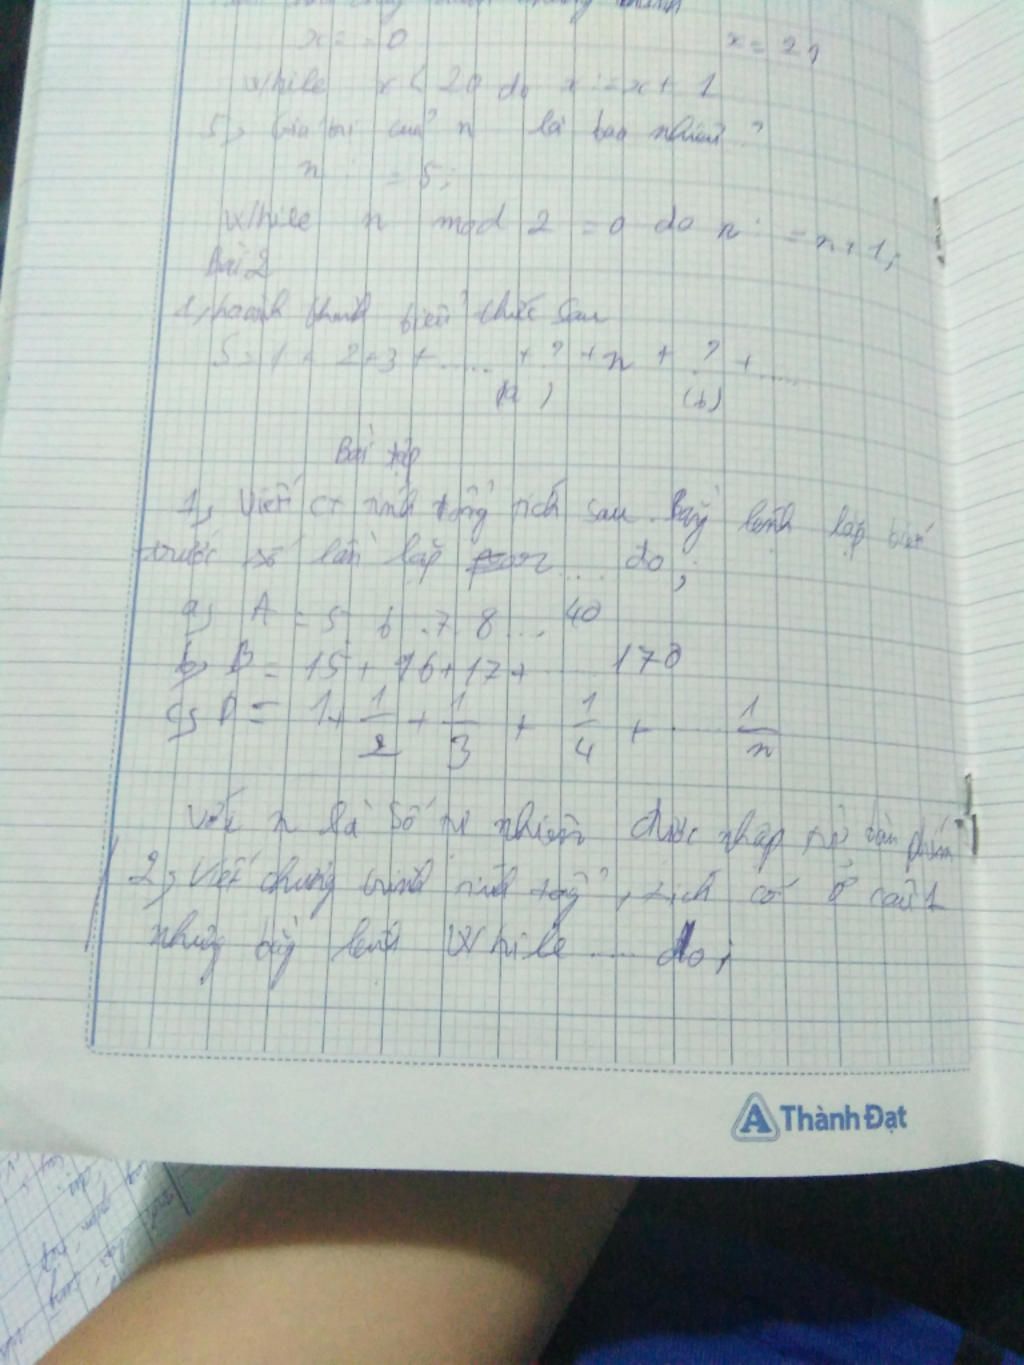 x = 0 x = 21
While x < 20 do x := x + 1
5, Giá trị của n là bao nhiêu?
n := 5;
While n mod 2 = 0 do n := n + 1;
Bài 2
1, hoành thành biểu thức sau
S = 1 + 2 + 3 + ..... + ? + n + ? + .....
(a) (b)
Bài tập
1, Viết ct tính tổng tích sau. Bằng lệnh lặp biết
trước số lần lặp for .... do;
a, A = 5. 6 .7. 8 .... 40
b, B = 15 + 16 + 17 + .... 178
c, A = 1 + 1/2 + 1/3 + 1/4 + .... 1/n
Với n là số tự nhiên được nhập từ bàn phím
2, Viết chương trình tính tổng, tích có ở câu 1
nhưng bằng lệnh While .... do;
Thành Đạt